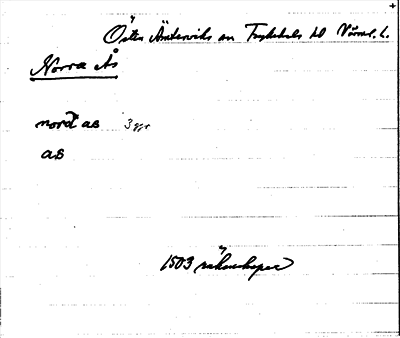 Östra Ämterviks sn Fryksdals hd Värml. l.
Norra Ås
nord as 3 ggr
as
1503 räkenskaper